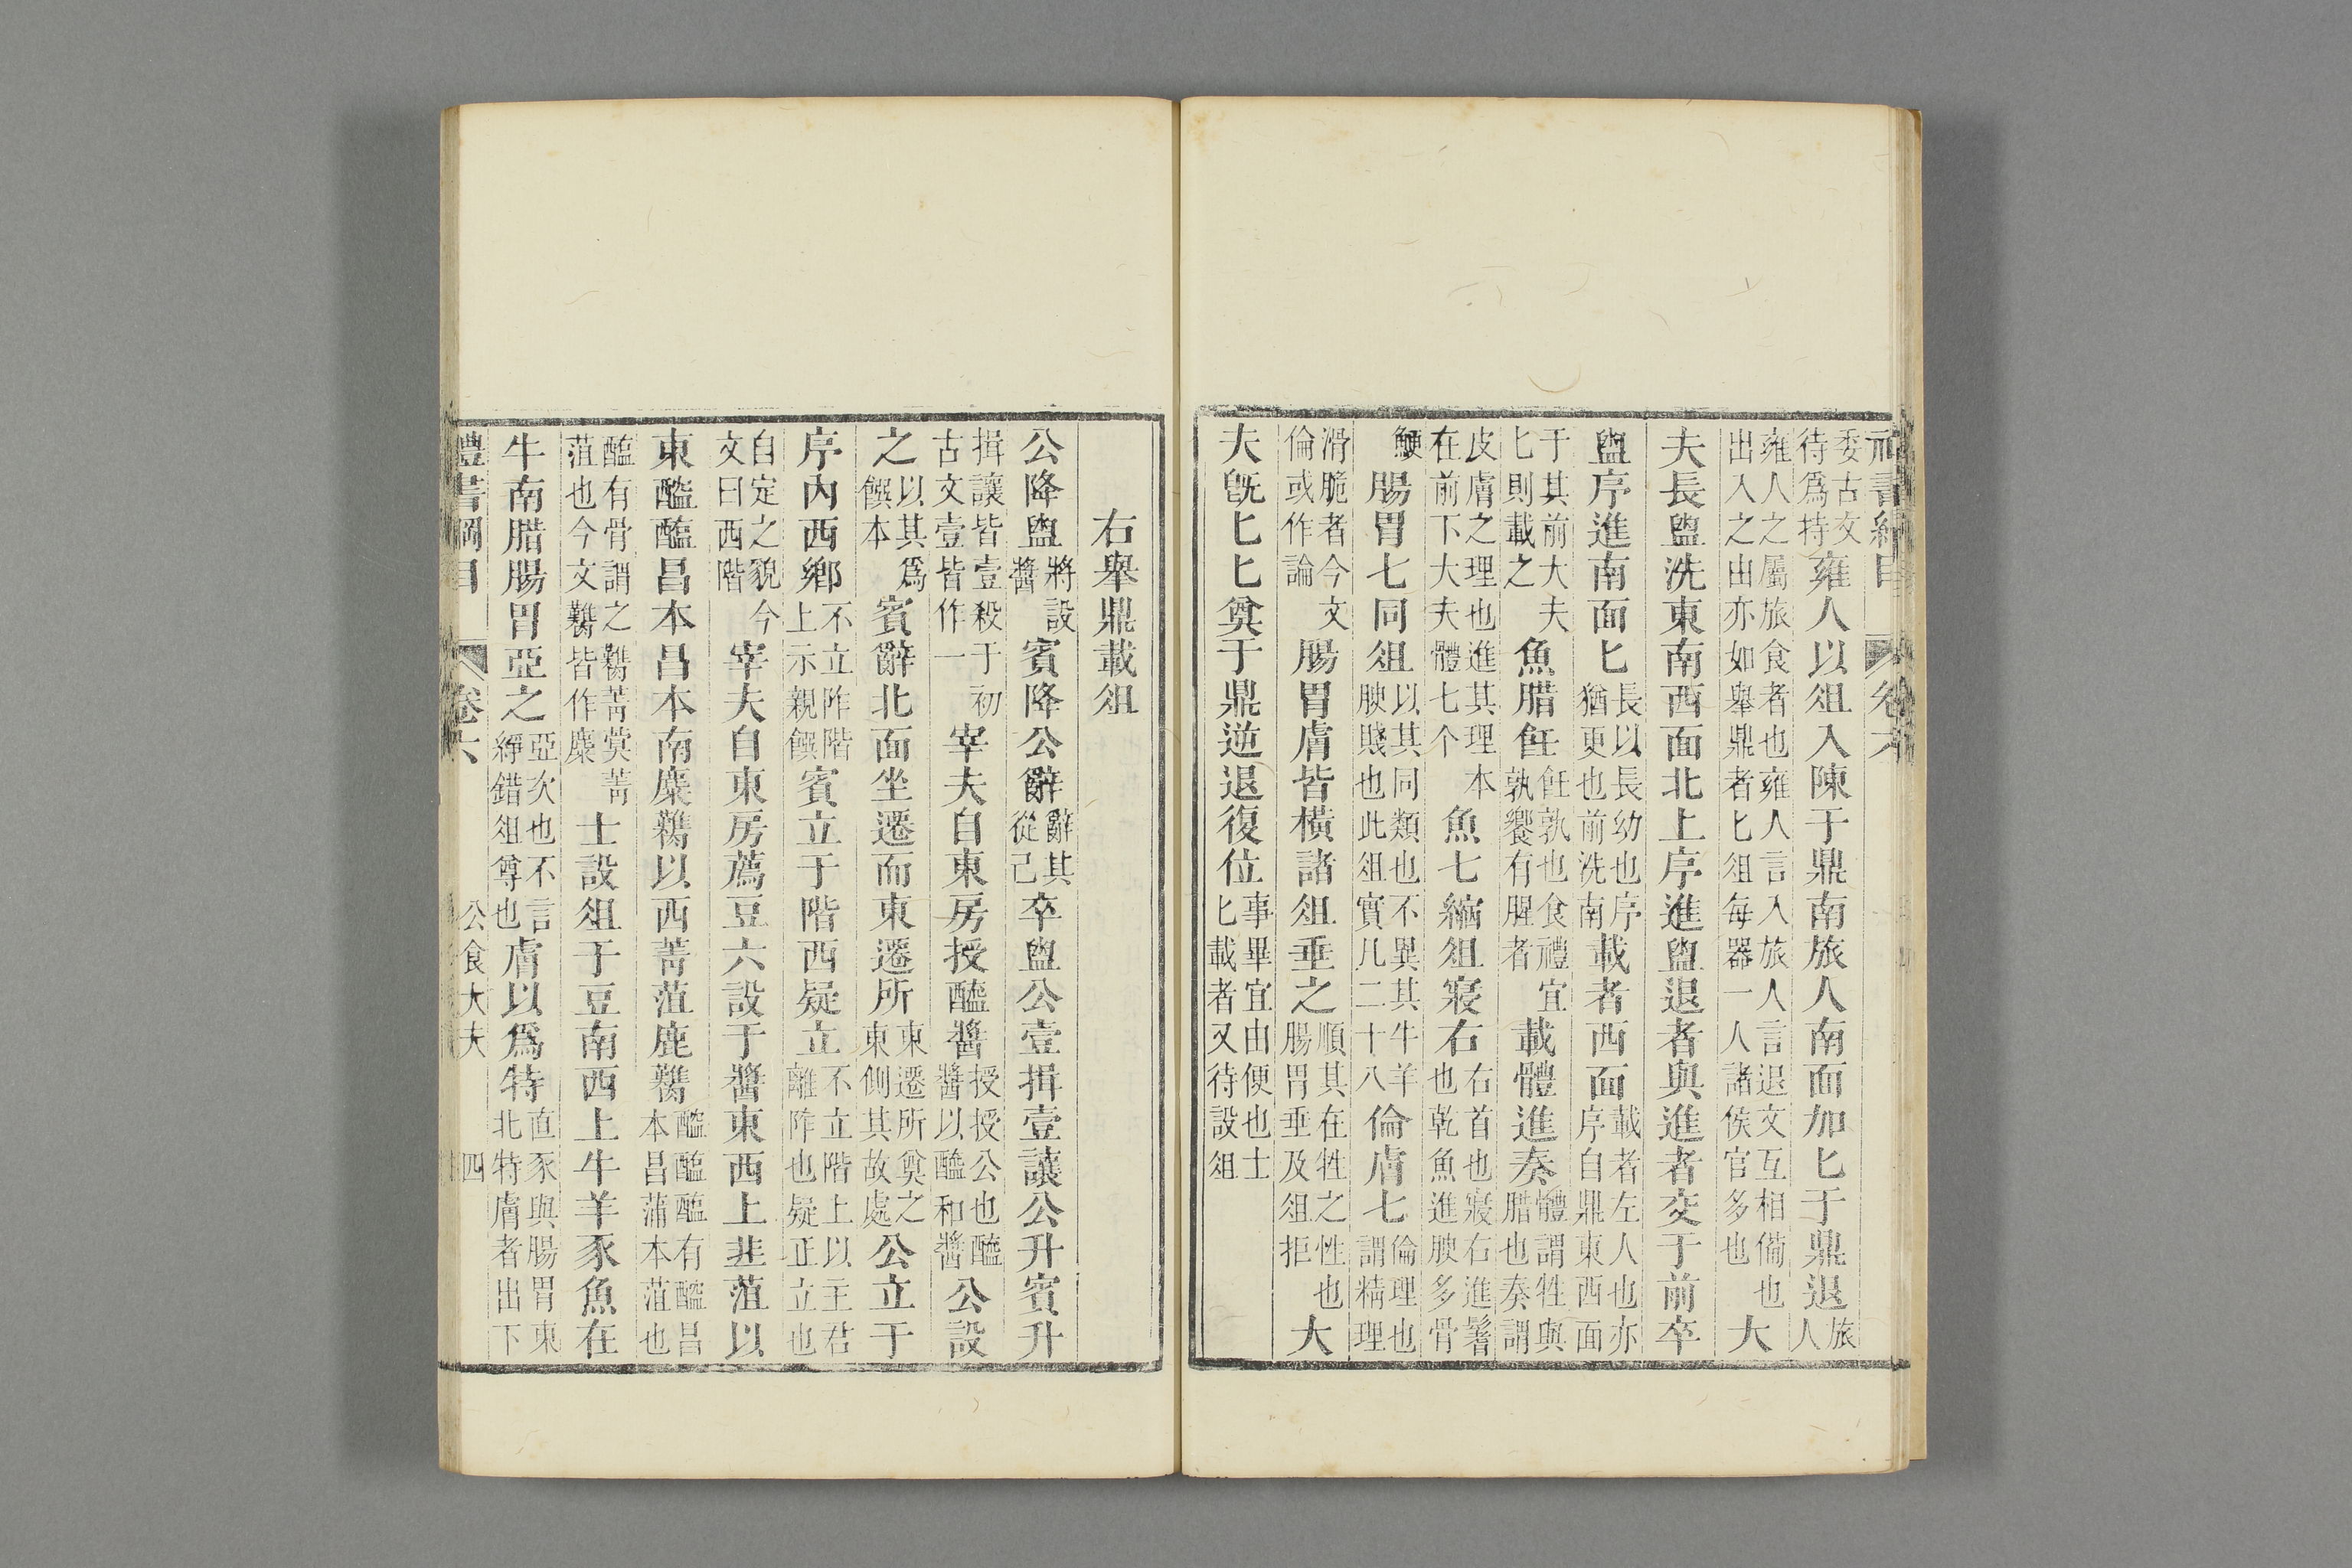 禮書綱目 卷六
委古文待爲持雍人以俎入陳于鼎南旅人南面加匕于鼎退旅人
雍人之屬旅食者也雍人言入旅人言退文互相備也出入之由亦如舉鼎者匕俎每器一人諸侯官多也大
夫長盥洗東南西面北上序進盥退者與進者交于前卒
盥序進南面匕長以長幼也序猶更也前洗南載者西面載者左人也亦序自鼎東西面
于其前大夫匕則載之魚腊飪飪孰也食禮宜孰饗有腥者載體進奏體謂牲與腊也奏謂
皮膚之理也進其理本在前下大夫體七个魚七縮俎寢右右首也寢右進鬐也乾魚進腴多骨
鯁腸胃七同俎以其同類也不異其牛羊腴賤也此俎實凡二十八倫膚七倫理也謂精理
滑脆者今文倫或作論腸胃膚皆橫諸俎垂之順其在牲之性也腸胃垂及俎拒大
夫旣匕匕奠于鼎逆退復位事畢宜由便也士匕載者又待設俎
右舉鼎載俎
公降盥將設醬賓降公辭辭其從己卒盥公壹揖壹讓公升賓升
揖讓皆壹殺于初古文壹皆作一宰夫自東房授醯醬授授公也醯醬以醯和醬公設
之以其爲饌本賓辭北面坐遷而東遷所東遷所奠之東側其故處公立于
序內西鄉不立阼階上示親饌賓立于階西疑立不立階上以主君離阼也疑正立也
自定之貌今文曰西階宰夫自東房薦豆六設于醬東西上韭菹以
東醯醢昌本昌本南麋臡以西菁菹鹿臡醯醢醢有醯昌本昌蒲本菹也
醢有骨謂之臡菁蓂菁菹也今文臡皆作麋士設俎于豆南西上牛羊豕魚在
牛南腊腸胃亞之亞次也不言綪錯俎尊也膚以爲特直豕與腸胃東北特膚者出下
禮書綱目 卷六 公食大夫 四